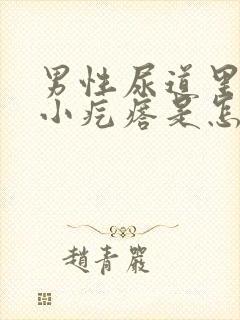 男性尿道里
小疙瘩是怎
趙青嚴